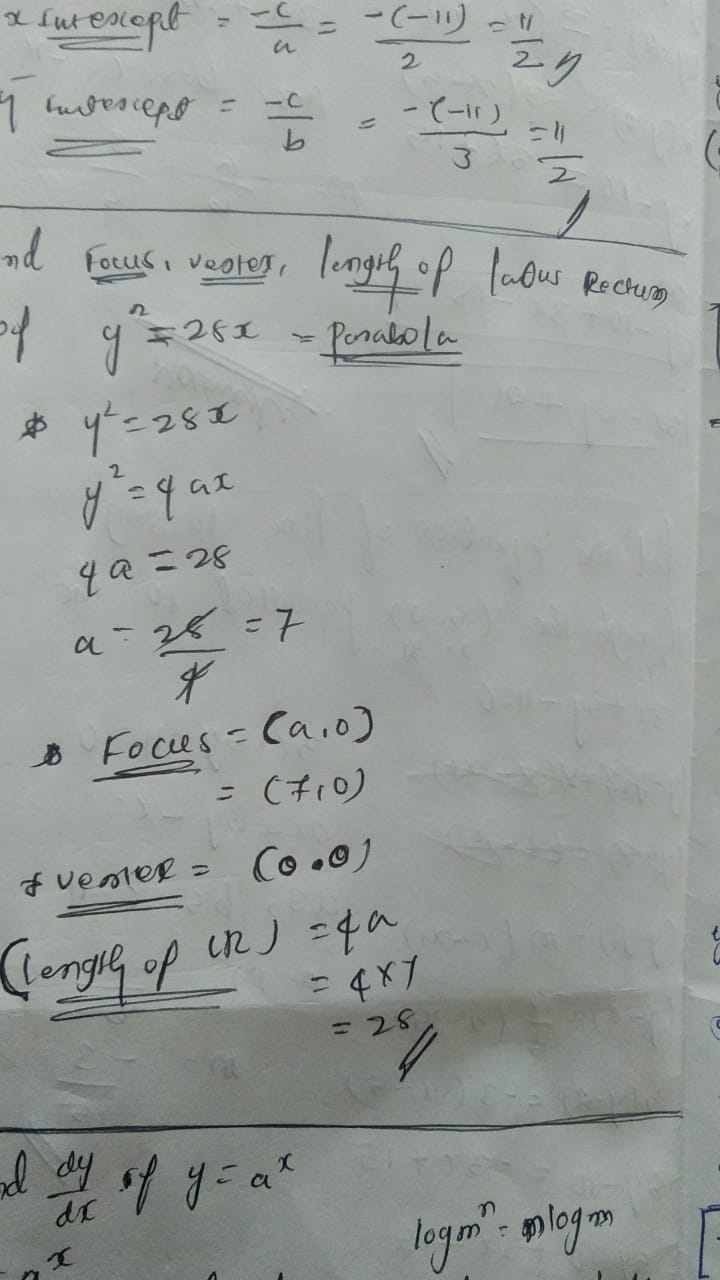 x intercept = -c/a = -(-11)/2 = 11/2
y intercept = -c/b = -(-11)/3 = 11/2
nd Focus, vertex, length of latus Rectum
of y² = 28x = Parabola
* y² = 28x
y² = 4ax
4a = 28
a = 28/4 = 7
* Focus = (a,0)
= (7,0)
* vertex = (0.0)
(length of LR) = 4a
= 4×7
= 28
nd dy/dx of y = a^x
log m^n = n log m